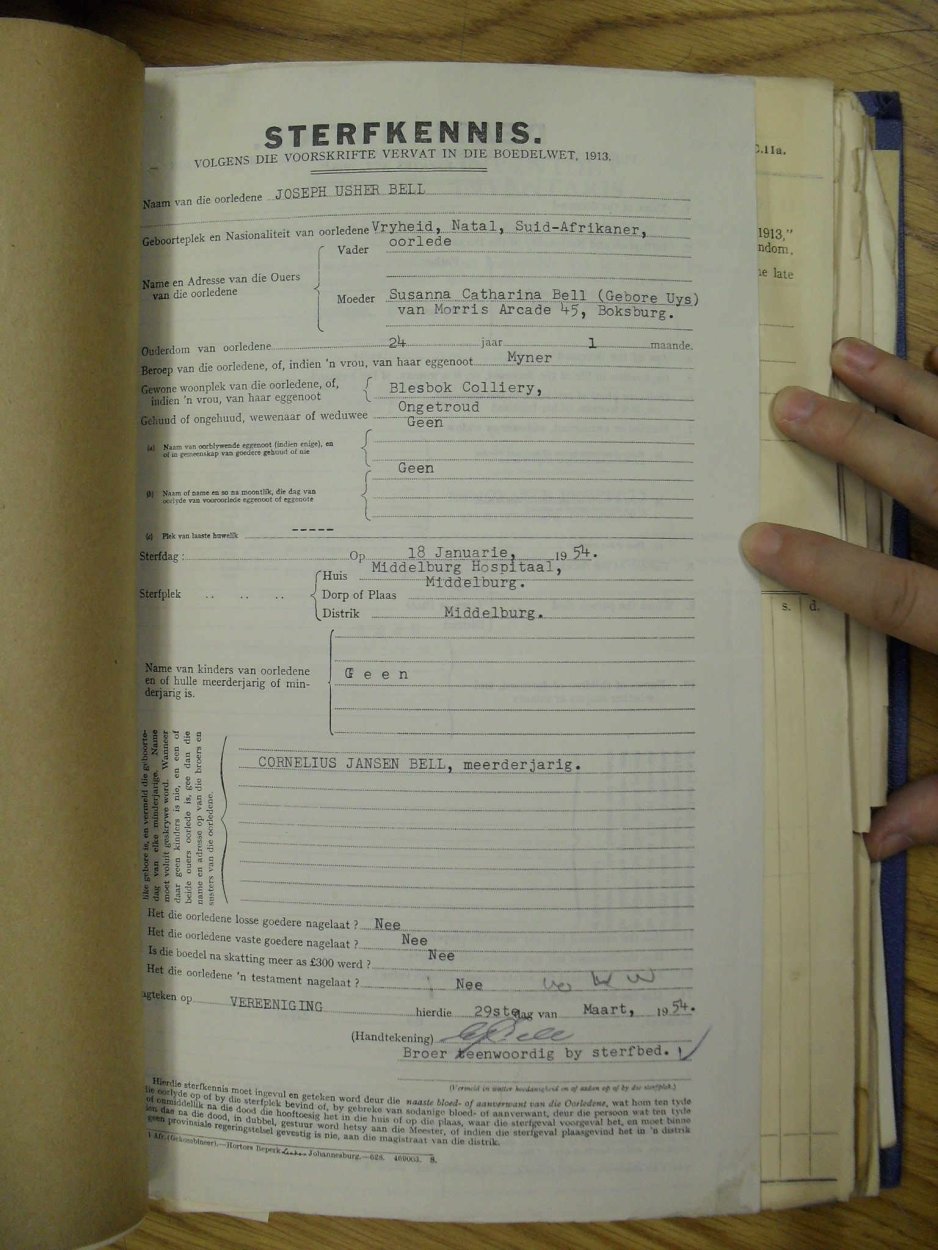 STERFKENNIS.
VOLGENS DIE VOORSKRIFTE VERVAT IN DIE BOEDELWET, 1913.
Naam van die oorledene JOSEPH USHER BELL
Geboorteplek en Nasionaliteit van oorledene Vryheid, Natal, Suid-Afrikaner,
Vader oorlede
Name en Adresse van die Ouers
van die oorledene
Moeder Susanna Catharina Bell (Gebore Uys)
van Morris Arcade 45, Boksburg.
Ouderdom van oorledene 24 jaar 1 maande.
Beroep van die oorledene, of, indien 'n vrou, van haar eggenoot Myner
Gewone woonplek van die oorledene, of,
indien 'n vrou, van haar eggenoot Blesbok Colliery,
Gehuud of ongehuud, wewenaar of weduwee Ongetroud
Geen
(a) Naam van oorblywende eggenoot (indien enige), en
of in gemeenskap van goedere gehuud of nie
Geen
(b) Naam of name en so na moontlik, die dag van
oorlyde van vooroorlede eggenoot of eggenote
(c) Plek van laaste huwelik -----
Sterfdag: Op 18 Januarie, 1954.
Huis Middelburg Hospitaal,
Middelburg.
Sterfplek .. .. .. Dorp of Plaas
Distrik Middelburg.
Name van kinders van oorledene
en of hulle meerderjarig of min-
derjarig is.
G e e n
like gebore is, en vermeld die geboorte-
dag van elke minderjarige. Name
moet voluit geskrywe word. Wanneer
daar geen kinders is nie, en een of
beide ouers oorlede is, gee dan die
name en adresse op van die broers en
susters van die oorledene.
CORNELIUS JANSEN BELL, meerderjarig.
Het die oorledene losse goedere nagelaat? Nee
Het die oorledene vaste goedere nagelaat? Nee
Is die boedel na skatting meer as £300 werd? Nee
Het die oorledene 'n testament nagelaat? Nee
agteken op VEREENIGING hierdie 29ste dag van Maart, 1954.
(Handtekening)
Broer teenwoordig by sterfbed.
(Vermeld in watter hoedanigheid en of aldan op of by die sterfplek.)
Hierdie sterfkennis moet ingevul en geteken word deur die naaste bloed- of aanverwant van die Oorledene, wat hom ten tyde
die oorlyde op of by die sterfplek bevind of, by gebreke van sodanige bloed- of aanverwant, deur die persoon wat ten tyde
of onmiddellik na die dood die hooftoesig het in die huis of op die plaas, waar die sterfgeval voorgeval het, en moet binne
dae na die dood, in dubbel, gestuur word hetsy aan die Meester, of indien die sterfgeval plaasgevind het in 'n distrik
geen provinsiale regeringstelsel gevestig is nie, aan die magistraat van die distrik.
Afr. (Gekombineer).—Hortors Beperk Johannesburg.—628. 469003. 8.
C.11a.
1913,"
ndom,
he late
s. d.